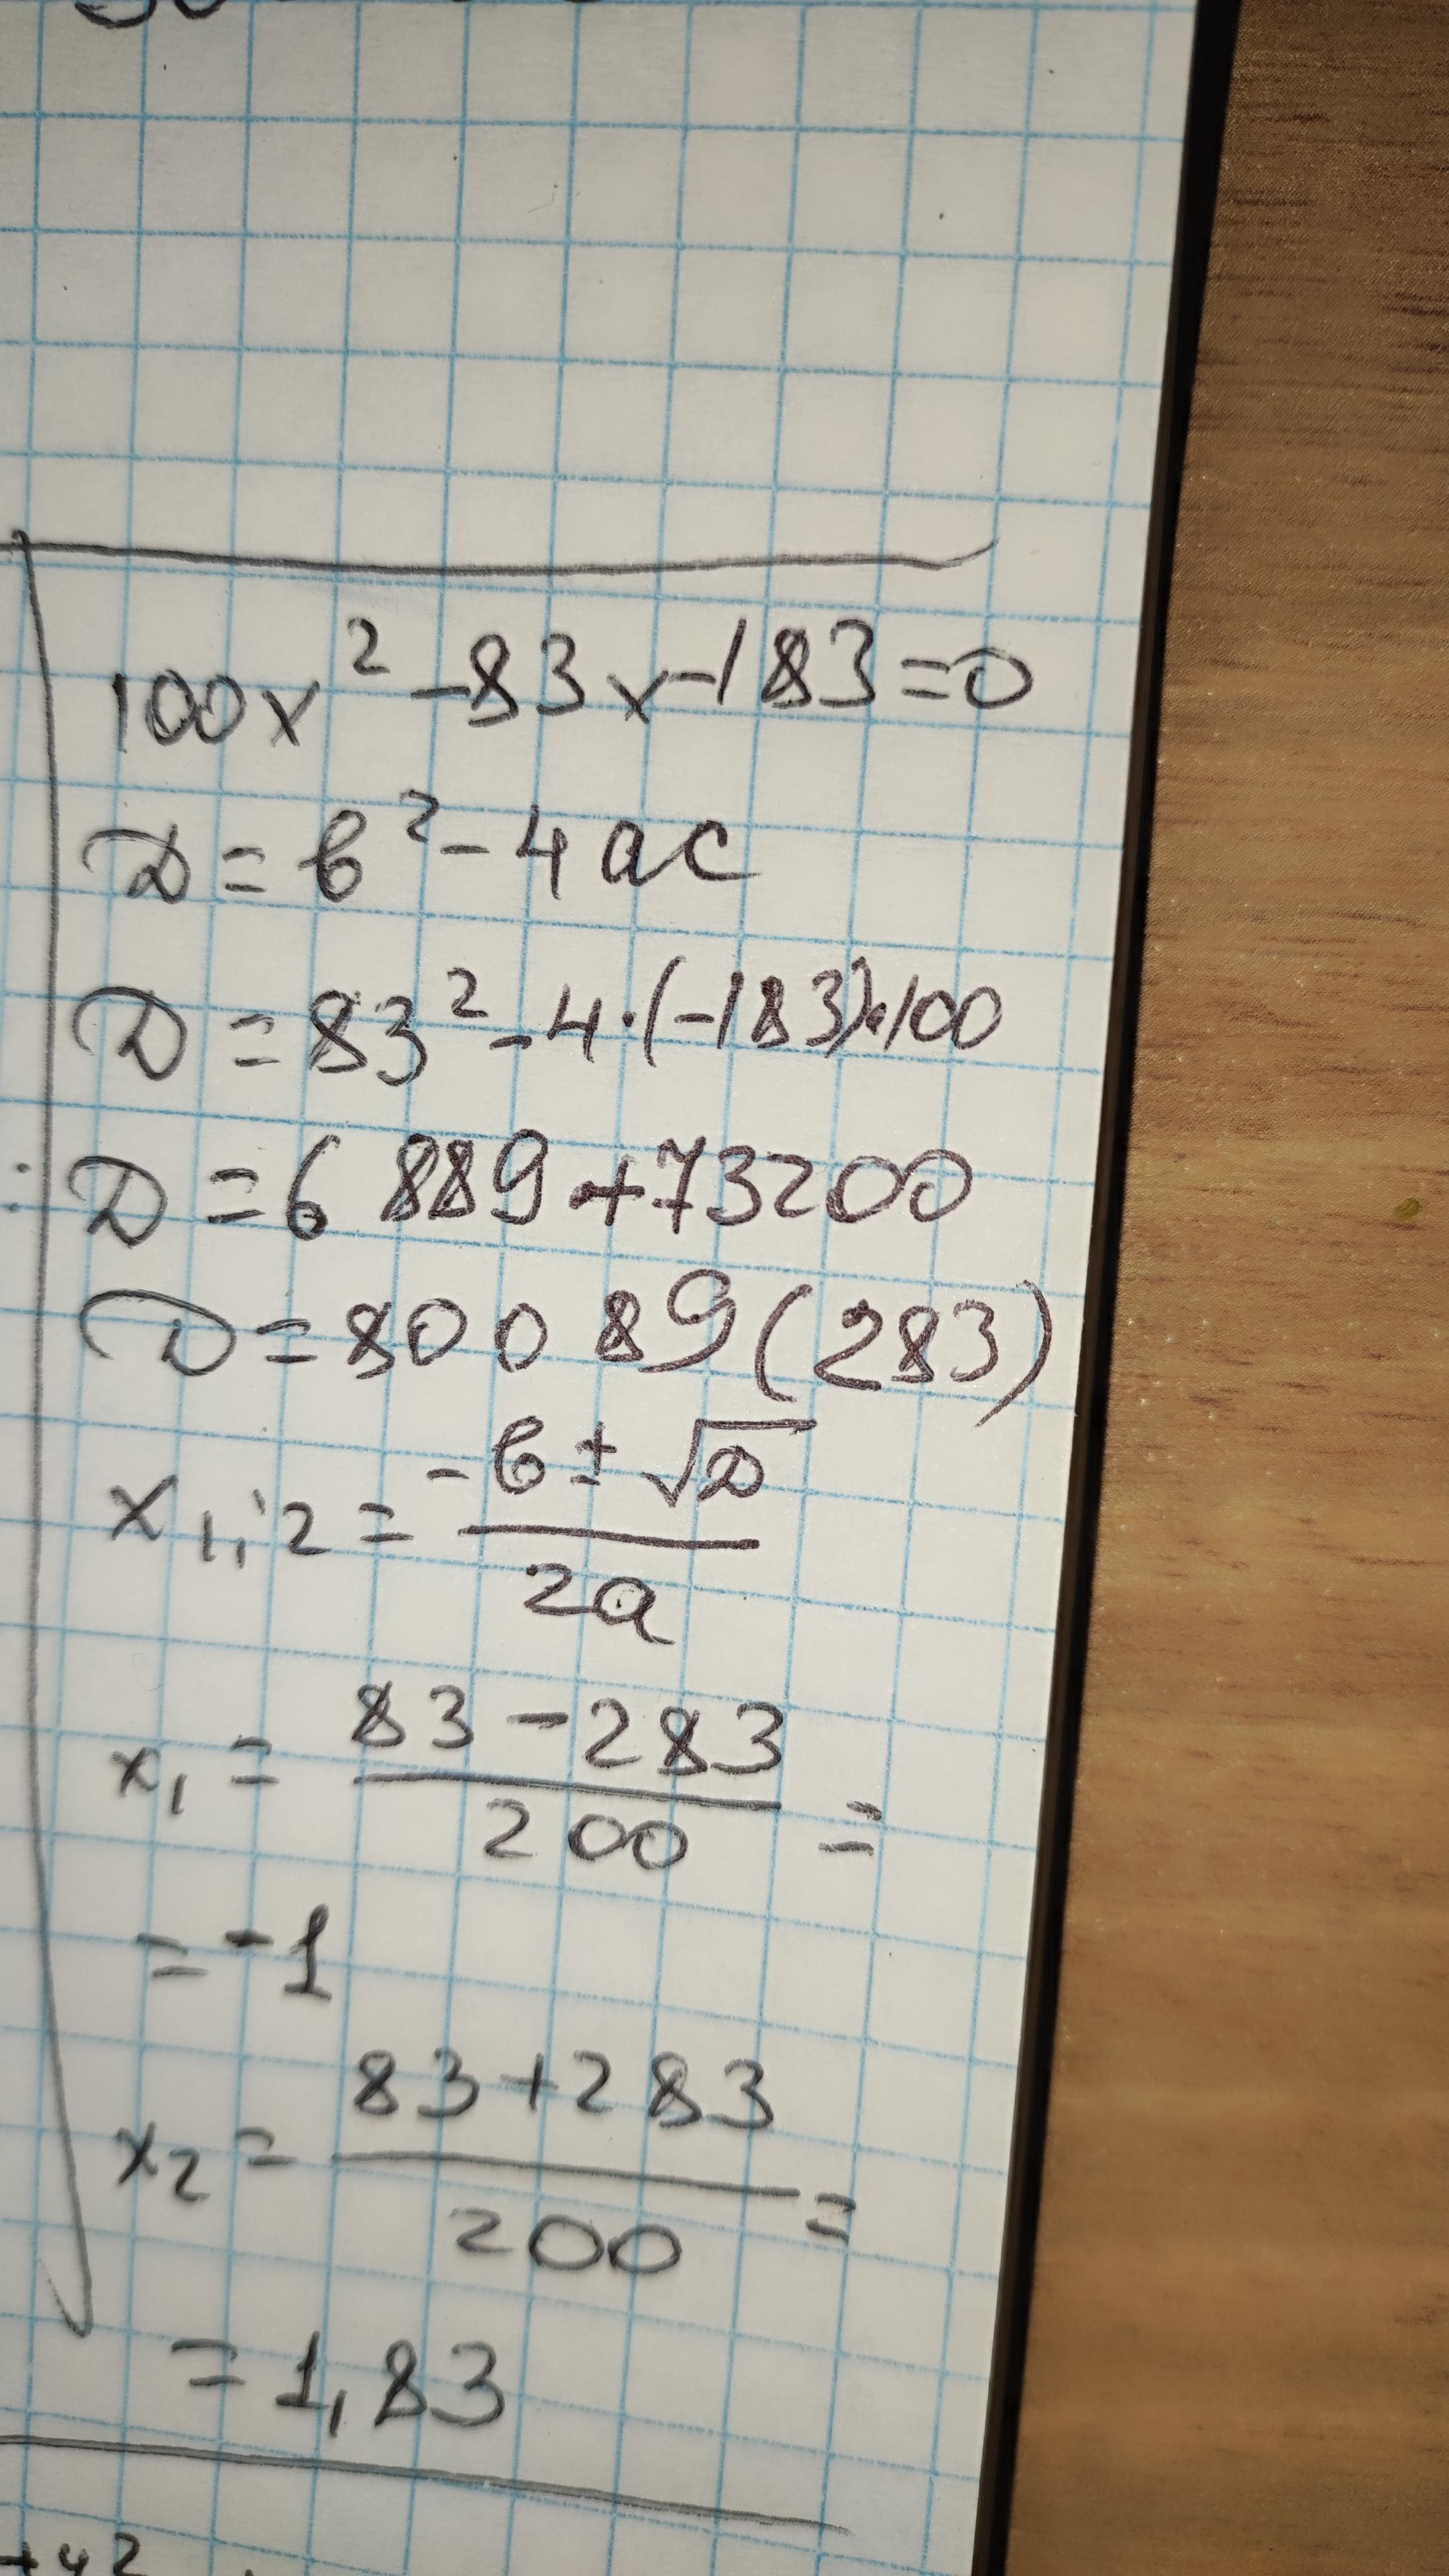 100x² -83x-183=0
D = b² - 4ac
D = 83² - 4·(-183)·100
D = 6889+73200
D = 80089(283)
x₁,;₂ = -b ± √D / 2a
x₁ = 83-283 / 200 =
= -1
x₂ = 83+283 / 200 =
= 1,83